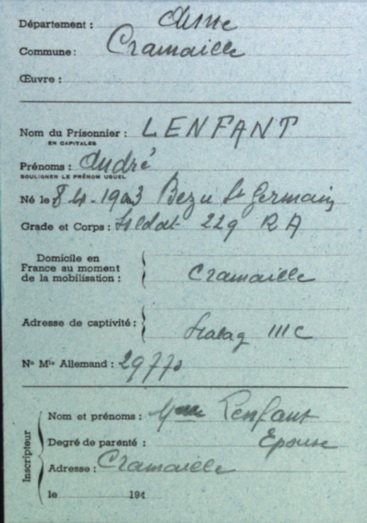 Département : Aisne
Commune : Cramaille
Œuvre :
Nom du Prisonnier : LENFANT
EN CAPITALES
Prénoms : André
SOULIGNER LE PRÉNOM USUEL
Né le 8-4-1903 Bezu St Germain
Grade et Corps : Soldat 229 R A
Domicile en
France au moment
de la mobilisation : Cramaille
Adresse de captivité : Stalag III C
N° Mle Allemand : 29770
Inscripteur
Nom et prénoms : Mme Lenfant
Degré de parenté : Epouse
Adresse : Cramaille
le 194